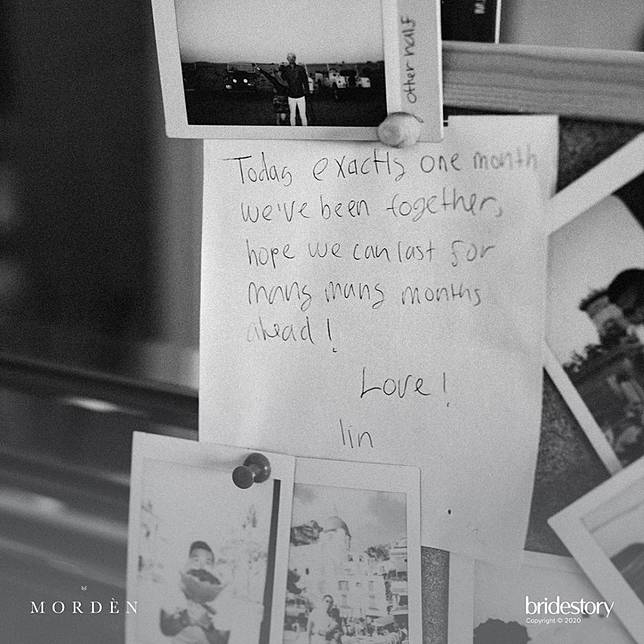 other half
Today exactly one month
we've been together,
hope we can last for
many many months
ahead!
Love!
lin
MORDÈN
bridestory
Copyright © 2020